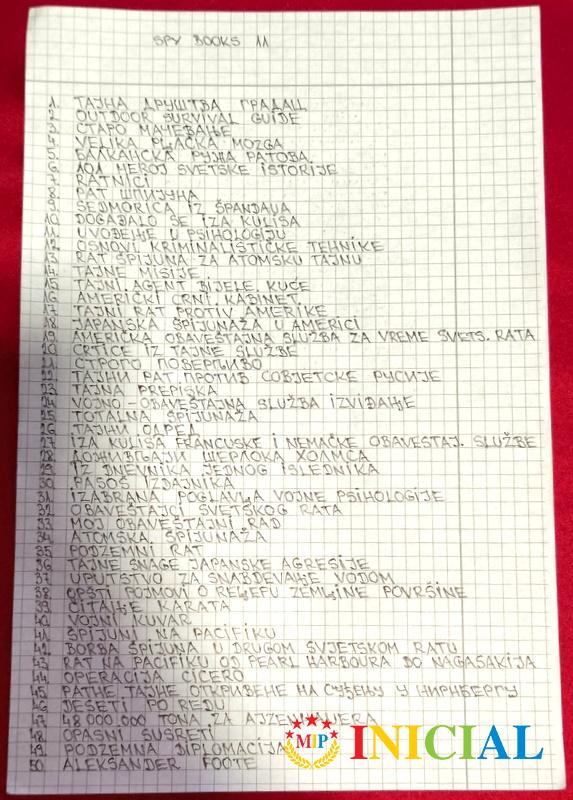 SPY BOOKS 11
1. ТАЈНА ДРУШТВА ГРАДАЦ
2. OUTDOOR SURVIVAL GUIDE
3. СТАРО МАЧЕВАЊЕ
4. VELIKA PLJAČKA MOZGA
5. БАЛКАНСКА РУЖА РАТОВА
6. 101 HEROJ SVETSKE ISTORIJE
7. RATNICI
8. РАТ ШПИЈУНА
9. SEDMORICA IZ ŠPANDAUA
10. DOGAĐALO SE IZA KULISA
11. UVOĐENJE U PSIHOLOGIJU
12. OSNOVI KRIMINALISTIČKE TEHNIKE
13. RAT ŠPIJUNA ZA ATOMSKU TAJNU
14. TAJNE MISIJE
15. TAJNI AGENT BIJELE KUĆE
16. AMERIČKI CRNI KABINET
17. TAJNI RAT PROTIV AMERIKE
18. JAPANSKA ŠPIJUNAŽA U AMERICI
19. AMERIČKA OBAVEŠTAJNA SLUŽBA ZA VREME SVETS. RATA
20. CRTICE IZ TAJNE SLUŽBE
21. СТРОГО ПОВЕРЉИВО
22. ТАЈНИ РАТ ПРОТИВ СОВЈЕТСКЕ РУСИЈЕ
23. TAJNA PREPISKA
24. VOJNO-OBAVEŠTAJNA SLUŽBA IZVIĐANJE
25. TOTALNA ŠPIJUNAŽA
26. ТАЈНИ ОДРЕД
27. IZA KULISA FRANCUSKE I NEMAČKE OBAVEŠTAJ. SLUŽBE
28. ДОЖИВЉАЈИ ШЕРЛОКА ХОЛМСА
29. IZ DNEVNIKA JEDNOG ISLEDNIKA
30. PASOŠ IZDAJNIKA
31. IZABRANA POGLAVLJA VOJNE PSIHOLOGIJE
32. OBAVEŠTAJCI SVETSKOG RATA
33. MOJ OBAVEŠTAJNI RAD
34. ATOMSKA ŠPIJUNAŽA
35. PODZEMNI RAT
36. TAJNE SNAGE JAPANSKE AGRESIJE
37. UPUTSTVO ZA SNABDEVANJE VODOM
38. OPŠTI POJMOVI O RELJEFU ZEMLJINE POVRŠINE
39. ČITANJE KARATA
40. VOJNI KUVAR
41. ŠPIJUNI NA PACIFIKU
42. BORBA ŠPIJUNA U DRUGOM SVJETSKOM RATU
43. RAT NA PACIFIKU OD PEARL HARBOURA DO NAGASAKIJA
44. OPERACIJA CICERO
45. РАТНЕ ТАЈНЕ ОТКРИВЕНЕ НА СУЂЕЊУ У НИРНБЕРГУ
46. DESETI PO REDU
47. 48 000.000 TONA ZA AJZENHAUERA
48. OPASNI SUSRETI
49. PODZEMNA DIPLOMACIJA
50. ALEKSANDER FOOTE
MIP INICIAL